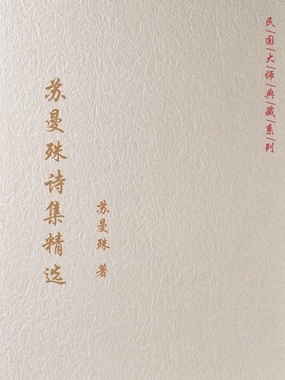 民|国|大|师|典|藏|系|列
苏曼殊诗集精选
苏曼殊 著